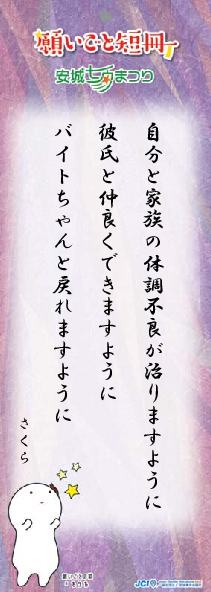 願いごと短冊
安城七夕まつり
自分と家族の体調不良が治りますように
彼氏と仲良くできますように
バイトちゃんと戻れますように
さくら
JCI